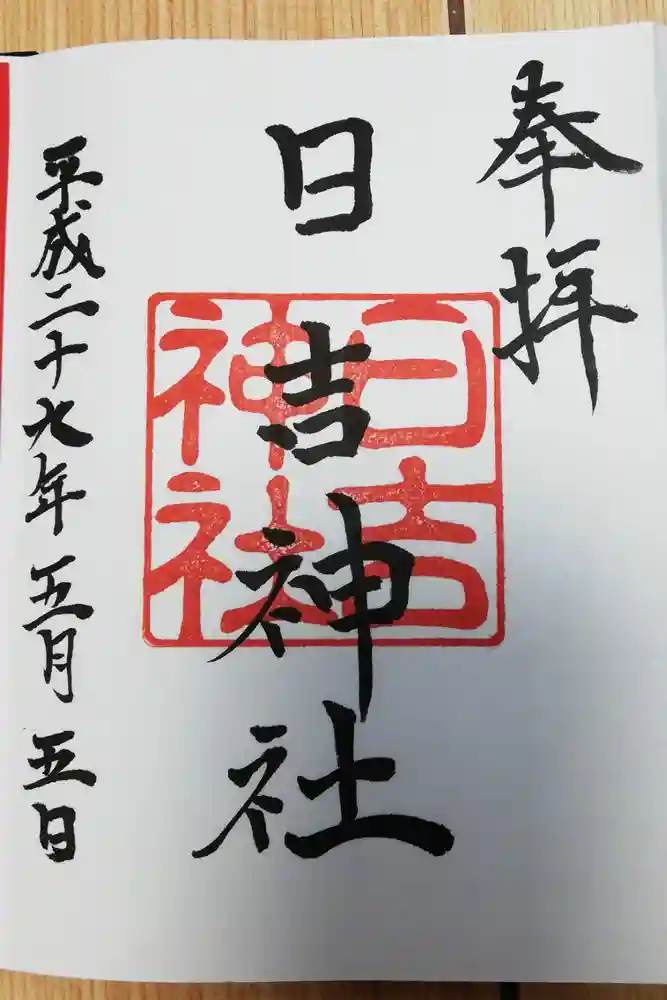 奉拝
日吉神社
日吉神社
平成二十九年五月五日